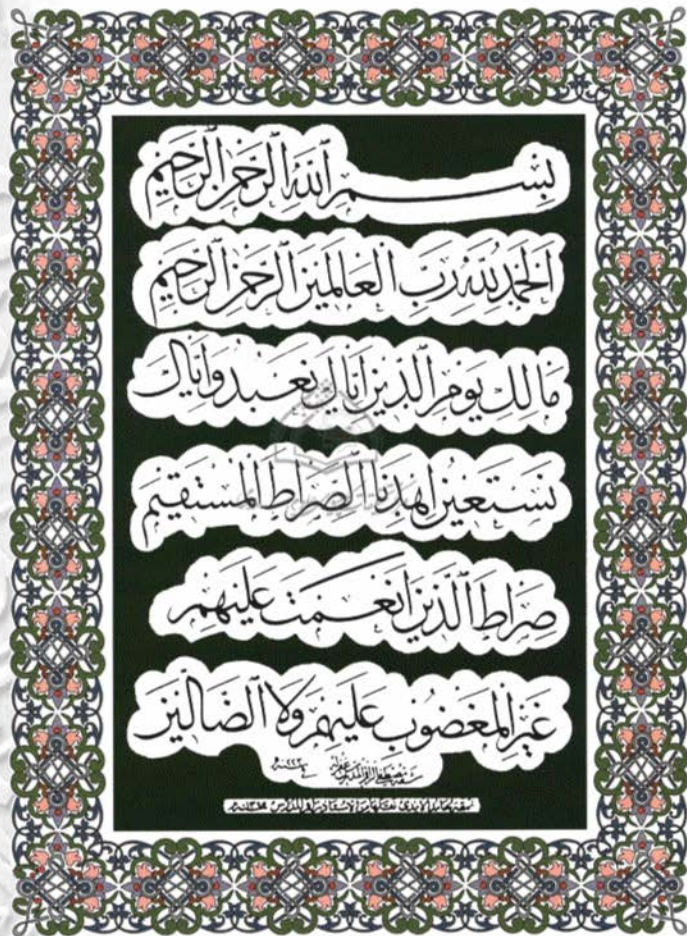 بِسْمِ ٱللَّهِ ٱلرَّحْمَنِ ٱلرَّحِيمِ
اَلْحَمْدُ لِلَّهِ رَبِّ الْعَالَمِينَ ٱلرَّحْمَنِ ٱلرَّحِيمِ
مَالِكِ يَوْمِ ٱلدِّينِ اِيَّاكَ نَعْبُدُ وَاِيَّاكَ
نَسْتَعِينُ اِهْدِنَا ٱلصِّرَاطَ الْمُسْتَقِيمَ
صِرَاطَ ٱلَّذِينَ اَنْعَمْتَ عَلَيْهِمْ
غَيْرِ الْمَغْضُوبِ عَلَيْهِمْ وَلَا ٱلضَّالِّينَ